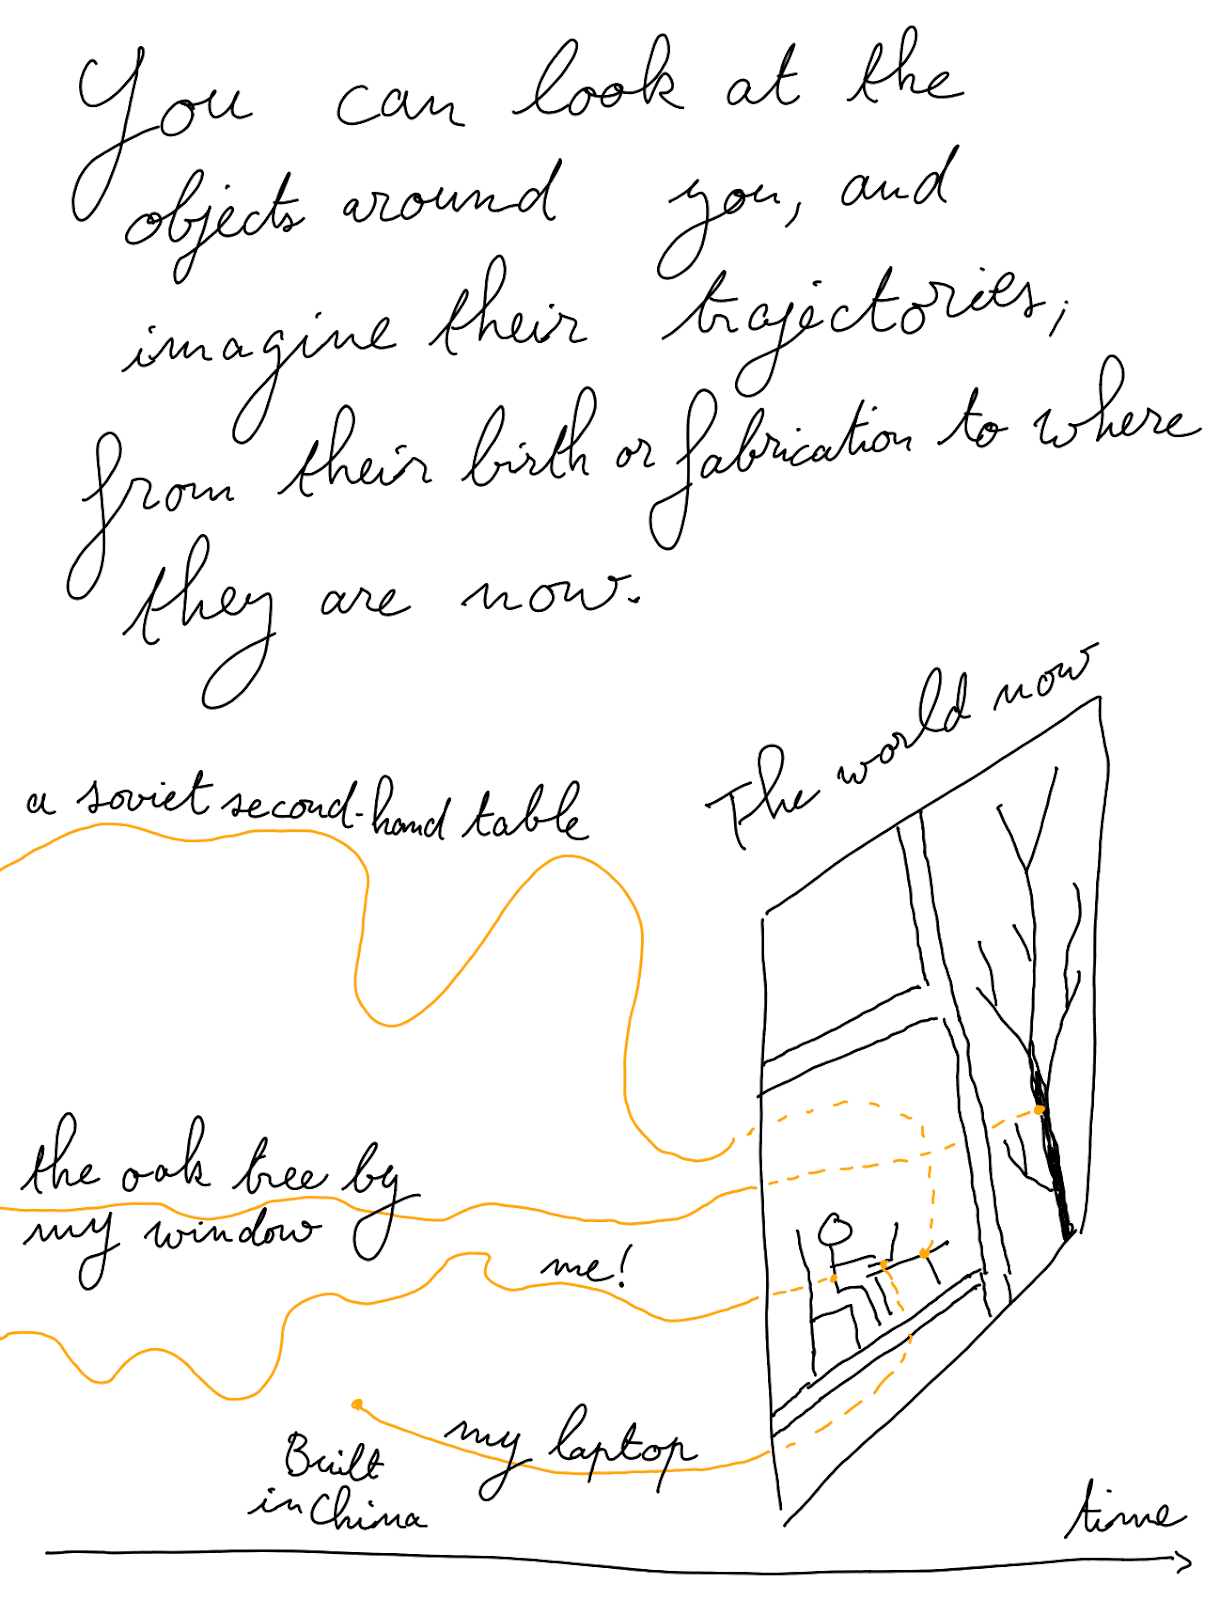 You can look at the
objects around you, and
imagine their trajectories,
from their birth or fabrication to where
they are now.
The world now
a soviet second-hand table
the oak tree by
my window
me!
my laptop
Built
in China
time